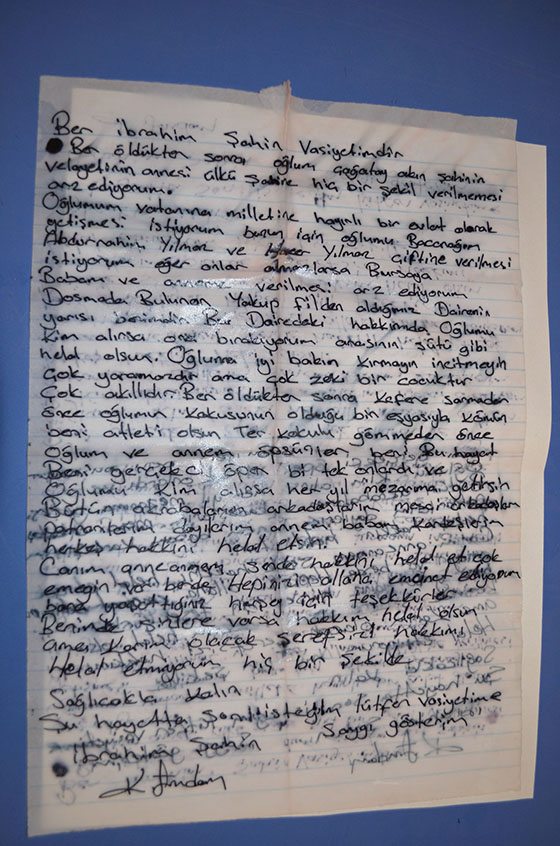 Ben ibrahim Şahin Vasiyetimdir
Ben öldükten sonra oğlum Çağatay akın şahinin
velayetinin annesi ülkü Şahine hiç bir şekil verilmemesi
arz ediyorum.
Oğlumun vatanına milletine hayırlı bir evlat olarak
yetişmesi istiyorum bunun için oğlumu Bacanağım
Abdurrahim Yılmaz ve Yılmaz çiftine verilmesi
istiyorum eğer onlar almazlarsa Bursaya
Babam ve anneme verilmesi arz ediyorum
Dosmada Bulunan Yakup fil'den aldığımız Dairenin
yarısı benimdir Bu Dairedeki hakkımda Oğlumu
kim alırsa ona bırakıyorum anasının sütü gibi
helal olsun. Oğluma iyi bakın kırmayın incitmeyin
Çok yaramazdır ama çok zeki bir çocuktur
Çok akıllıdır. Ben öldükten sonra kefene sarmadan
önce oğlumun kokusunun olduğu bir eşyasıyla gömün
beni atleti olsun Ter kokulu gömmeden önce
Oğlum ve annem öpsünler beni Bu hayat
Beni gerçekci öpen bi tek onlardı ve
Oğlumu kim alırsa her yıl mezarıma getirsin
Bütün akrabalarım arkadaşlarım mesai arkadaşlarım
patronlarım dayılarım annem babam kardeşlerim
herkes hakkını helal etsin.
Canım anneannem sende hakkını helal et çok
emeğin var bende Hepinizi allaha emanet ediyorum
bana yaptığınız herşey için teşekkürler
Beninde sizlere varsa hakkım helal olsun
ama karım olacak şerefsize hakkımı
Helal etmiyorum hiç bir şekilde
Sağlıcakla kalın
Şu hayatta son isteğim lütfen vasiyetime
ibrahim Şahin Saygı gösterin